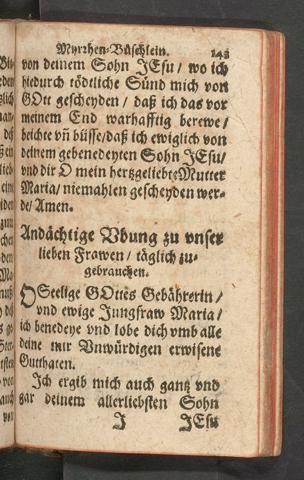 Myrrhen-Büschlein. 143
von deinem Sohn JEsu / wo ich
hiedurch tödtliche Sünd mich von
GOtt gescheyden / daß ich das vor
meinem End warhafftig berewe /
beichte vñ büsse / daß ich ewiglich von
deinem gebenedeyten Sohn JEsu /
vnd dir O mein hertzgeliebte Mutter
Maria / niemahlen gescheyden wer-
de / Amen.
Andächtige Vbung zu vnser
lieben Frawen / täglich zu-
gebrauchen.
O Seelige GOttes Gebährerin /
vnd ewige Jungfraw Maria /
ich benedeye vnd lobe dich vmb alle
deine mir Vnwürdigen erwisene
Gutthaten.
Ich ergib mich auch gantz vnd
gar deinem allerliebsten Sohn
J JEsu